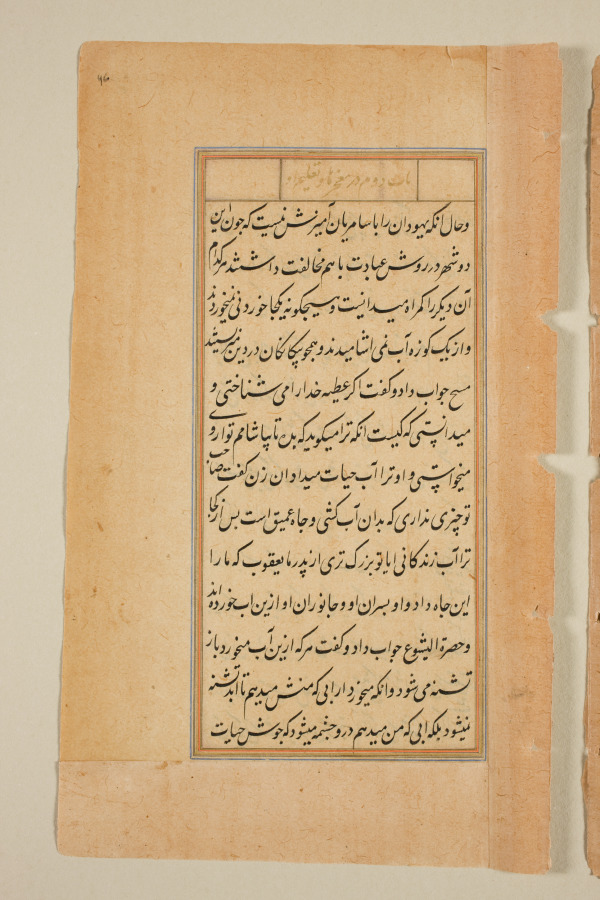 ۷۵
باب دوم در معجزها و تعلیمها
وحال آنکه یهودان را با سامریان آمیزش نیست که چون این
دو شهر در روش عبادت با هم مخالفت داشتند هر کدام
آن دیگر را کمراه میدانیت و هیچکونه یکجا خوردنی نمیخوردند
و از یک کوزه آب نمی اشامیدند و همچو بیکانکان در دین میزیستند
مسیح جواب داد و کفت اکر عطیه خدا را می شناختی و
میدانستی که کیست انکه ترا میکوید که بده تا بیاشامم تو از وی
میخواستی و او ترا آب حیات میداد ان زن کفت صاحب
تو چیزی نداری که بدان آب کشی و چاه عمیق است پس از کجا
ترا آب زندکانی ایا تو بزرک تری از پدر ما یعقوب که ما را
این چاه داد و او و پسران او و جانوران او ازین اب خورده اند
وحضرة الیشوع جواب داد و کفت هر که ازین آب میخورد باز
تشنه می شود و انکه میخورد از ابی که منش میدهم تا ابد تشنه
نمیشود بلکه ابی که من میدهم درو چشمه میشود که جوش حیات